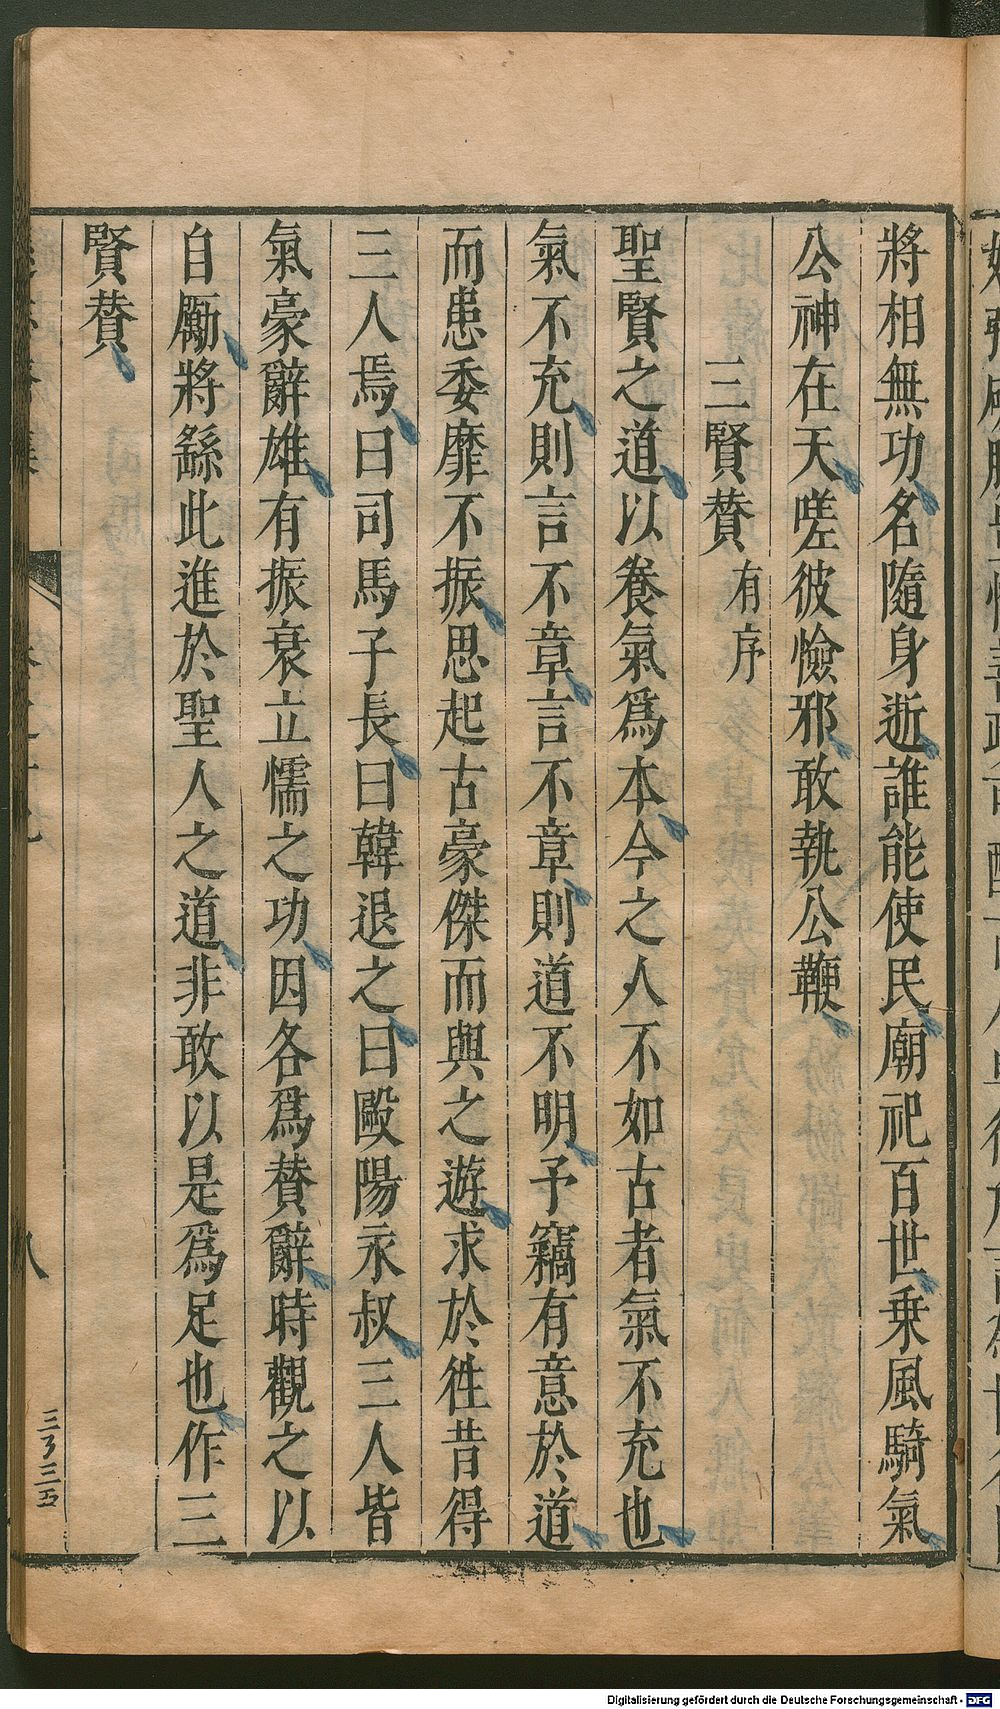 將相無功名隨身逝誰能使民廟祀百世乗風騎氣
公神在天嗟彼憸邪敢執公鞭
三賢賛有序
聖賢之道以養氣爲本今之人不如古者氣不充也
氣不充則言不章言不章則道不明予竊有意於道
而患委靡不振思起古豪傑而與之遊求於徃昔得
三人焉曰司馬子長曰韓退之曰歐陽永叔三人皆
氣豪辭雄有振衰立懦之功因各爲賛辭時觀之以
自勵將繇此進於聖人之道非敢以是爲足也作三
賢賛
八
Digitalisierung gefördert durch die Deutsche Forschungsgemeinschaft - DFG